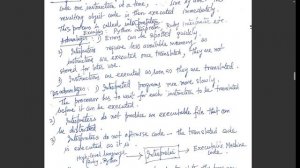 into one instruction at a time, line by line. The
resulting object code is then executed immediately.
This process is called interpretation.
Examples Python interpreter, Ruby interpreter etc
Advantages: 1) Errors can be spotted quickly
2) Interpreters require less available memory, as
instructions once are translated, they are not
stored for later use.
3) Instructions are executed as soon as they are translated.
Disadvantages: 1) Interpreted programs run more slowly.
The processor has to wait for each instruction to be translated
before it can be executed.
2) Interpreters do not produce an executable file that can
be distributed.
3) Interpreters do not optimise code - the translated code
is executed as it is.
High level language → Interpreter → Executable Machine
(Ruby, Python) code